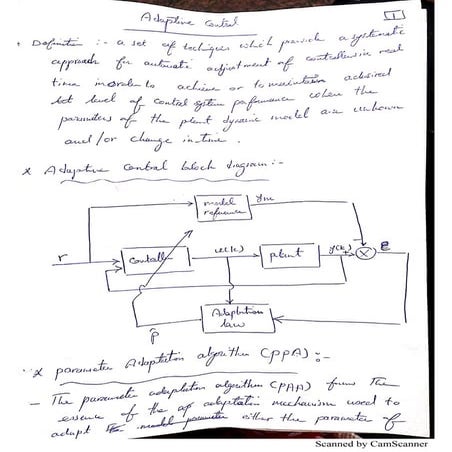 Adaptive Control
1
Definition :- a set of techniques which provide a systematic
approach for automatic adjustment of controllers in real
time in order to achieve or to maintain a desired
level of control system performance when the
parameters of the plant dynamic model are unknown
and/or change in time.
x Adaptive Control block diagram :-
model
reference
ym
r
Controller
u(k)
plant
y(k)
E
p̂
Adaptation
law
x parameter Adaptation algorithm (PPA) :-
- The parameter adaptation algorithm (PAA) forms The
essence of the adaptation mechanism used to
adapt either the parameter of
Scanned by CamScanner